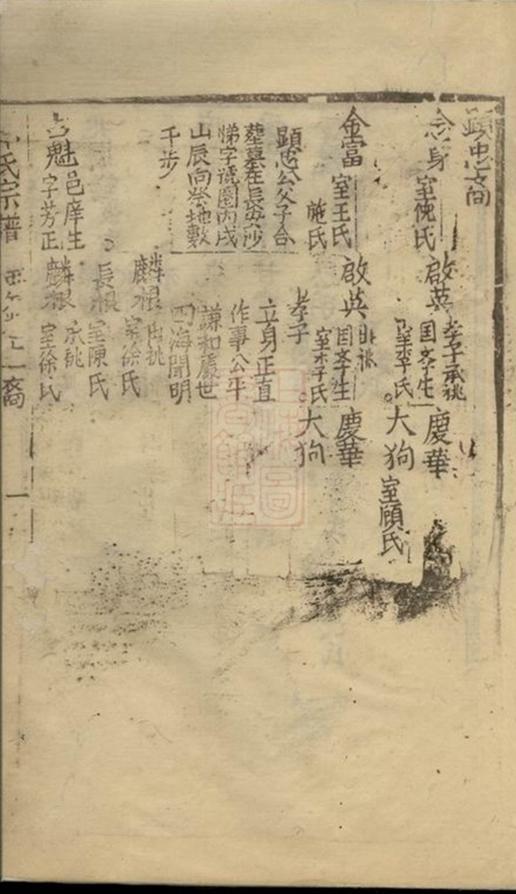 顕忠支
念身 室倪氏 啟英 孝子承祧
国孝生 慶華
室李氏 大狗 室顧氏
金富 室王氏 啟英 出祧
施氏 国孝生 慶華
室李氏 大狗
顕忠公父子合
塟墓在長安沙
悌字號圍丙戌
山辰向塋地數
千步
孝子
立身正直
作事公平
謙和處世
四海聞明
麟根 出祧
室徐氏
長根
室陳氏
占魁 邑庠生
字芳正 麟根 承祧
室徐氏
氏宗譜
裔
一